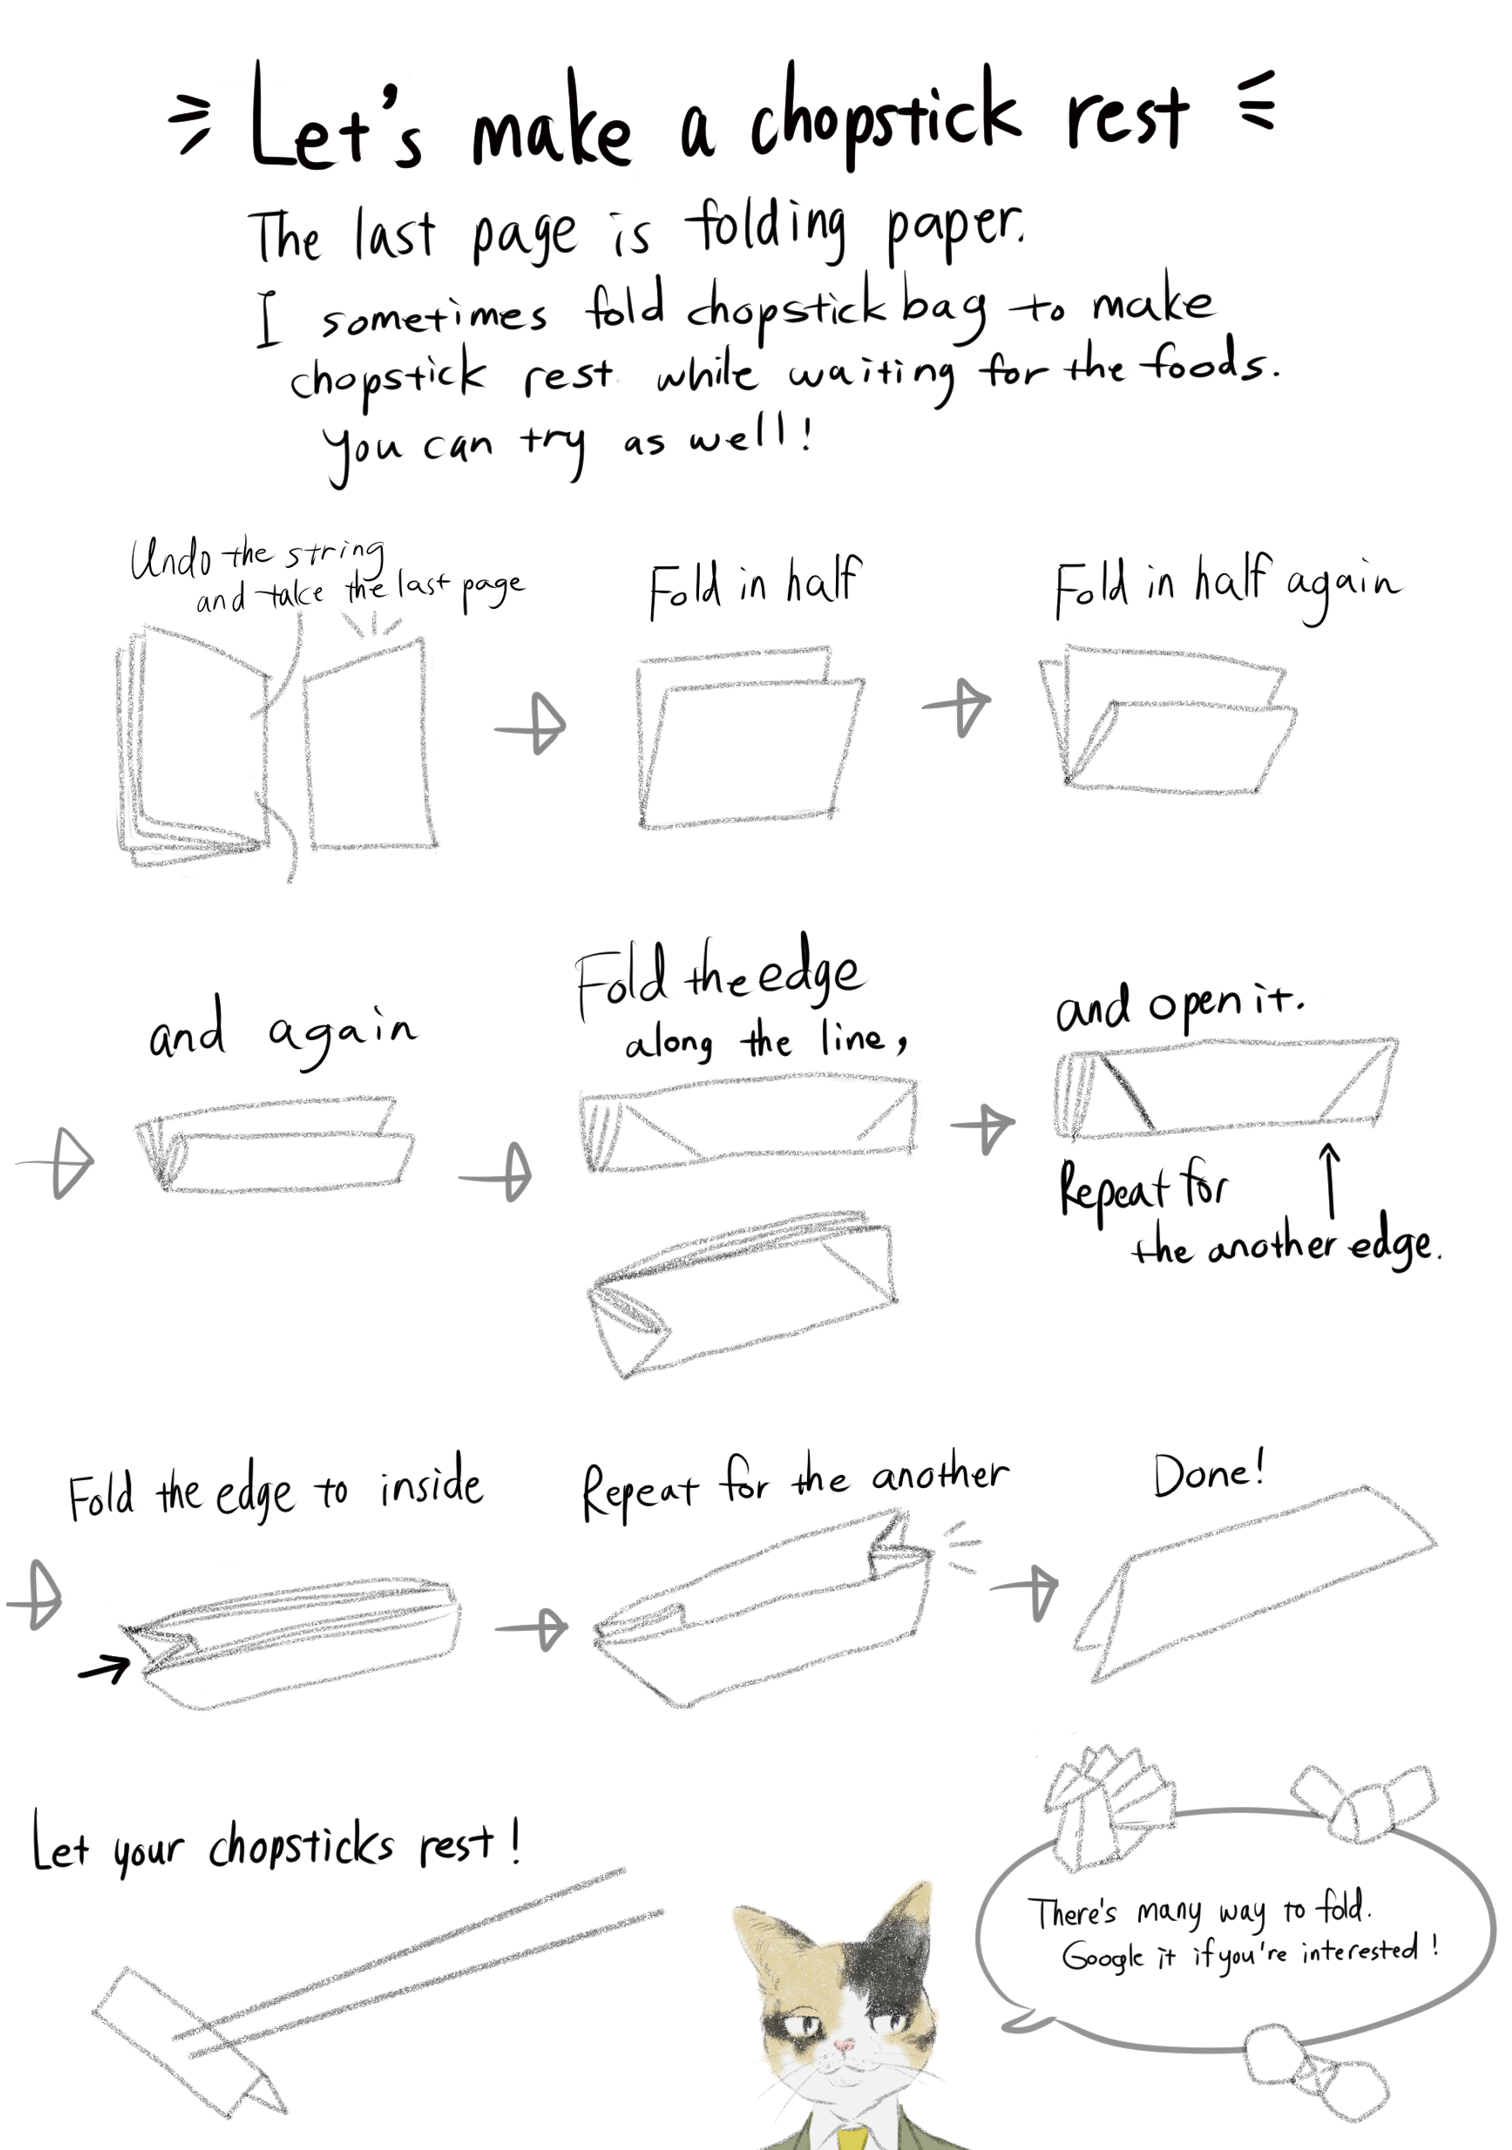 Let's make a chopstick rest
The last page is folding paper.
I sometimes fold chopstick bag to make
chopstick rest while waiting for the foods.
you can try as well!
Undo the string
and take the last page
Fold in half
Fold in half again
and again
Fold the edge
along the line,
and open it.
Repeat for
the another edge.
Fold the edge to inside
Repeat for the another
Done!
Let your chopsticks rest!
There's many way to fold.
Google it if you're interested!